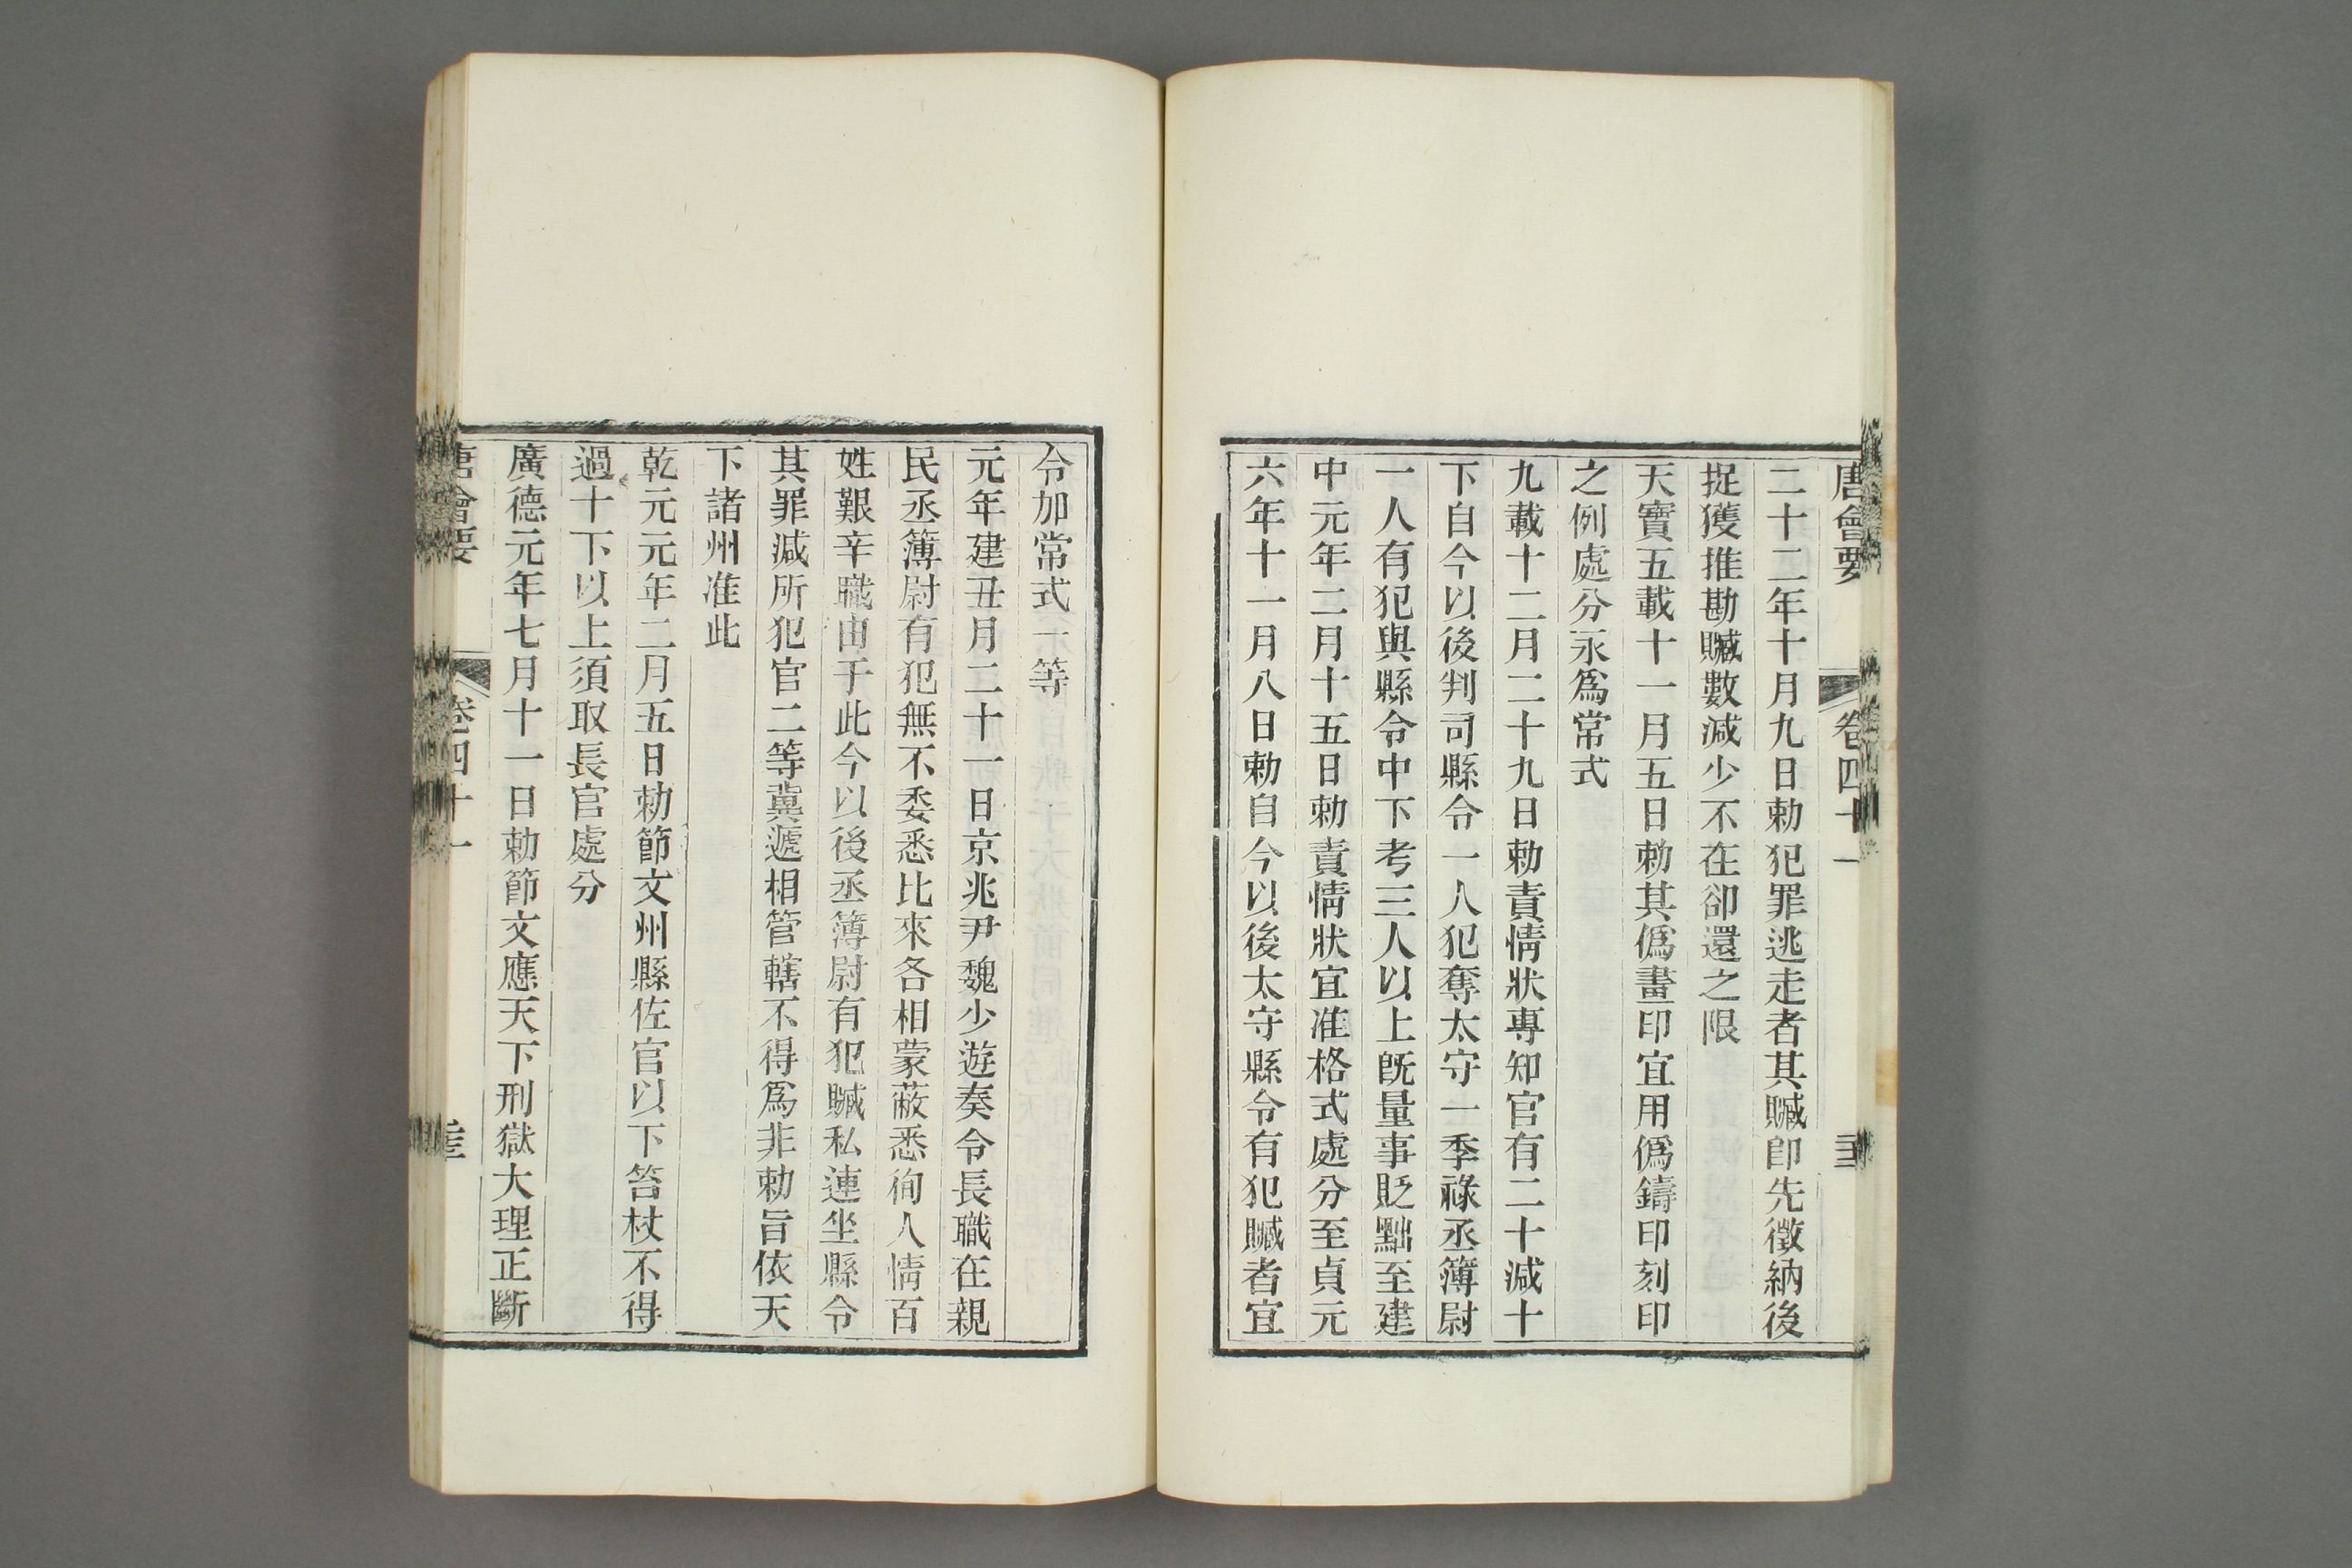 唐會要 卷四十一
二十二年十月九日勅犯罪逃走者其贓卽先徵納後
捉獲推勘贓數減少不在卻還之限
天寶五載十一月五日勅其僞畫印宜用僞鑄印刻印
之例處分永爲常式
九載十二月二十九日勅責情狀專知官有二十減十
下自今以後判司縣令一人犯奪太守一季祿丞簿尉
一人有犯與縣令中下考三人以上旣量事貶黜至建
中元年二月十五日勅責情狀宜准格式處分至貞元
六年十一月八日勅自今以後太守縣令有犯贓者宜
令加常式一等
元年建丑月二十一日京兆尹魏少遊奏令長職在親
民丞簿尉有犯無不委悉比來各相蒙蔽悉徇人情百
姓艱辛職由于此今以後丞簿尉有犯贓私連坐縣令
其罪減所犯官二等冀遞相管轄不得爲非勅旨依天
下諸州准此
乾元元年二月五日勅節文州縣佐官以下笞杖不得
過十下以上須取長官處分
廣德元年七月十一日勅節文應天下刑獄大理正斷
唐會要 卷四十一